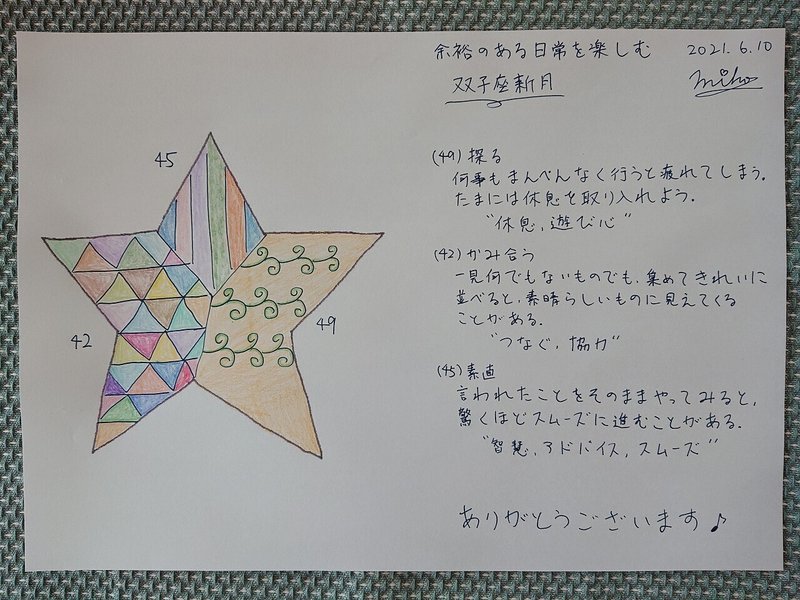 余裕のある日常を楽しむ 2021.6.10
双子座新月 miho
45
42
49
(49) 探る
何事もまんべんなく行うと疲れてしまう。
たまには休息を取り入れよう。
"休息, 遊び心"
(42) かみ合う
一見何でもないものでも、集めてきれいに
並べると、素晴らしいものに見えてくる
ことがある.
"つなぐ, 協力"
(45) 素直
言われたことをそのままやってみると,
驚くほどスムーズに進むことがある.
"智慧, アドバイス, スムーズ"
ありがとうございます♪